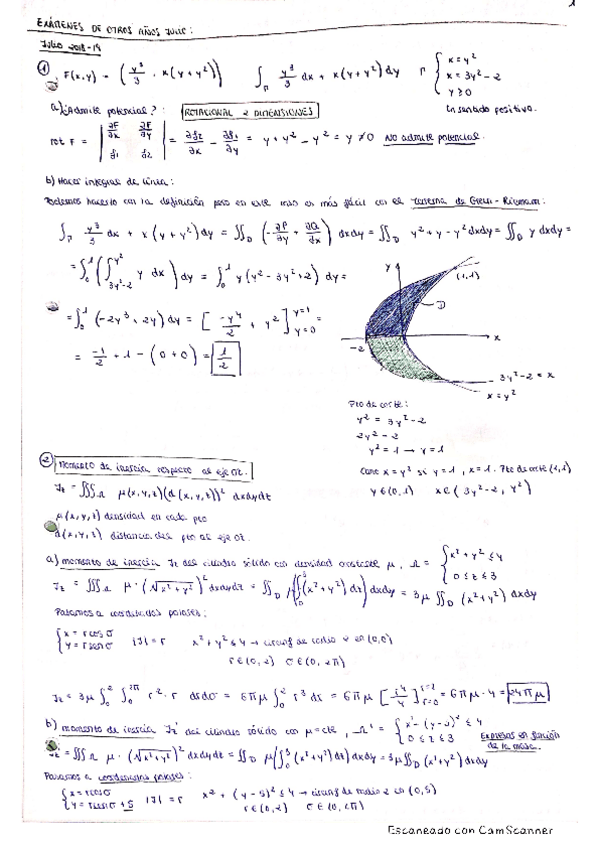 1
EXÁMENES DE OTROS AÑOS JULIO:
JULIO 2018-19
① F(x,y) = (y³/3, x(y+y²)) ∫_Γ y³/3 dx + x(y+y²)dy Γ { x=y² x=3y²-2 y≥0
En sentido positivo.
a) ¿Admite potencial?: ROTACIONAL 2 DIMENSIONES
rot F = | ∂F/∂x ∂F/∂y f₁ f₂ | = ∂f₂/∂x - ∂f₁/∂y = y+y²-y² = y ≠ 0 No admite potencial.
b) Hacer integral de línea:
Podemos hacerlo con la definición pero en este caso es más fácil con el teorema de Green-Riemann:
∫_Γ y³/3 dx + x(y+y²)dy = ∬_D (-∂P/∂y + ∂Q/∂x) dxdy = ∬_D y²+y-y²dxdy = ∬_D y dxdy =
= ∫₀¹ (∫_{3y²-2}^{y²} y dx) dy = ∫₀¹ y(y²-3y²+2) dy =
= ∫₀¹ (-2y³+2y)dy = [-y⁴/2 + y²]_{y=0}^{y=1} =
= -1/2 + 1 - (0+0) = 1/2
y
(1,1)
D
x
-2
3y²-2 = x
x = y²
Pto de corte:
y² = 3y²-2
2y²-2
y² = 1 → y=1
Como x=y² si y=1, x=1. Pto de corte (1,1)
y∈(0,1) x∈(3y²-2, y²)
② Momento de inercia respecto al eje OZ.
I_z = ∭_Ω μ(x,y,z)(d(x,y,z))² dxdydz
μ(x,y,z) densidad en cada pto
d(x,y,z) distancia del pto al eje OZ.
a) momento de inercia I_z del cilindro sólido con densidad constante μ, Ω = { x²+y² ≤ 4 0 ≤ z ≤ 3
I_z = ∭_Ω μ·(√x²+y²)² dxdydz = ∬_D μ(∫₀³(x²+y²)dz)dxdy = 3μ∬_D (x²+y²)dxdy
Pasamos a coordenadas polares:
{ x = r cos σ y = r sen σ |J| = r x²+y² ≤ 4 → circunf de radio 2 en (0,0)
r∈(0,2) σ∈(0,2π)
I_z = 3μ∫₀²∫₀^{2π} r²·r drdσ = 6πμ∫₀² r³ dx = 6πμ [r⁴/4]_{r=0}^{r=2} = 6πμ·4 = 24πμ
b) momento de inercia I_z' del cilindro sólido con μ=cte, Ω' = { x²-(y-5)² ≤ 4 0 ≤ z ≤ 3
Expresar en función
I_z = ∭_Ω μ·(√x²+y²)² dxdydz = ∬_D μ(∫₀³(x²+y²)dz)dxdy = 3μ∬_D (x²+y²)dxdy
Pasamos a coordenadas polares:
{ x = r cos σ y = r sen σ + 5 |J| = r x² + (y-5)² ≤ 4 → circunf de radio 2 en (0,5)
r∈(0,2) σ∈(0,2π)
Escaneado con CamScanner